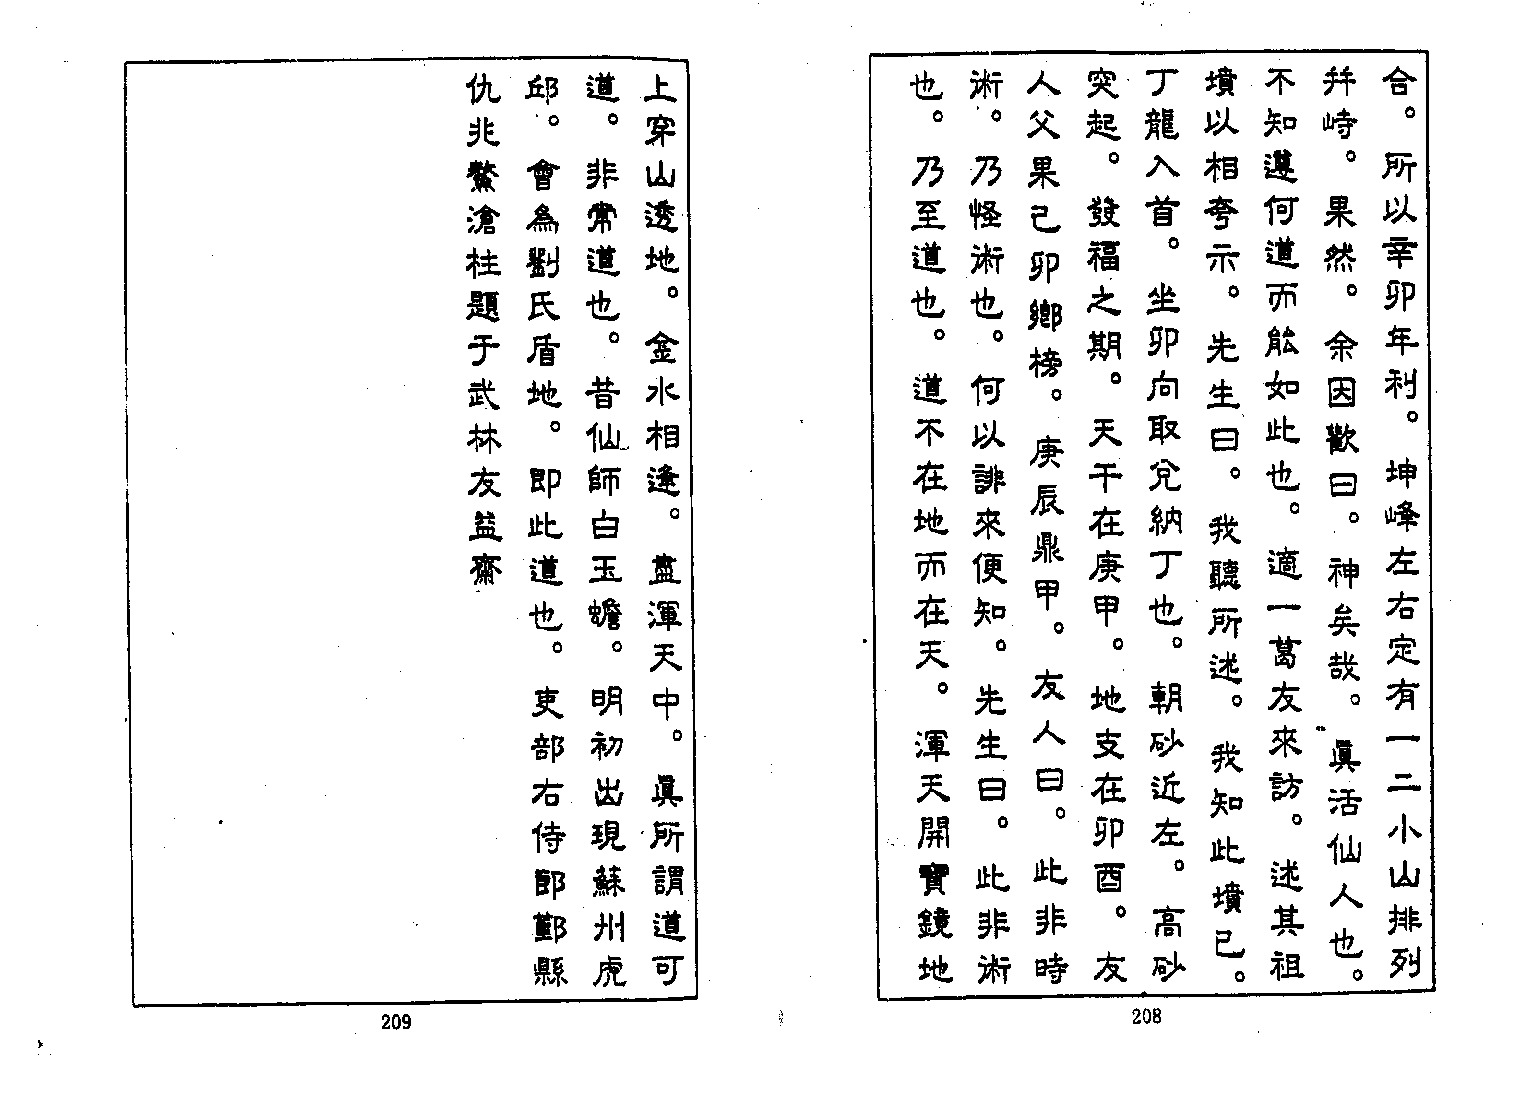 合。所以辛卯年利。坤峰左右定有一二小山排列
幷峙。果然。余因歡曰。神矣哉。眞活仙人也。
不知遵何道而能如此也。適一葛友來訪。述其祖
墳以相夸示。先生曰。我聽所述。我知此墳已。
丁龍入首。坐卯向取兌納丁也。朝砂近左。高砂
突起。發福之期。天干在庚甲。地支在卯酉。友
人父果己卯鄉榜。庚辰鼎甲。友人曰。此非時
術。乃怪術也。何以誹來便知。先生曰。此非術
也。乃至道也。道不在地而在天。渾天開寶鏡地
208
上穿山透地。金水相逢。盡渾天中。眞所謂道可
道。非常道也。昔仙師白玉蟾。明初出現蘇州虎
邱。會為劉氏盾地。即此道也。吏部右侍郎鄞縣
仇兆鰲滄柱題于武林友益齋
209